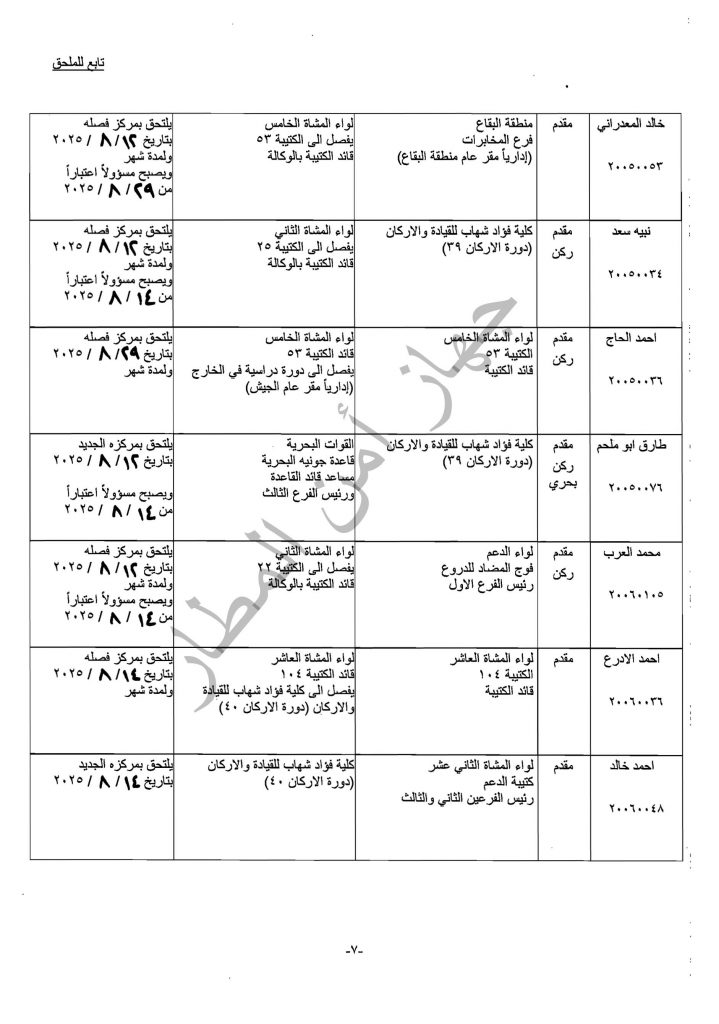 تابع للملحق
خالد المعدراني
٢٠٠٥٠٠٥٣
مقدم
منطقة البقاع
فرع المخابرات
(إدارياً مقر عام منطقة البقاع)
لواء المشاة الخامس
يفصل الى الكتيبة ٥٣
قائد الكتيبة بالوكالة
يلتحق بمركز فصله
بتاريخ ١٢/ ٨ / ٢٠٢٥
ولمدة شهر
ويصبح مسؤولاً اعتباراً
من ٢٩/ ٨ / ٢٠٢٥
نبيه سعد
٢٠٠٥٠٠٣٤
مقدم
ركن
كلية فؤاد شهاب للقيادة والاركان
(دورة الاركان ٣٩)
لواء المشاة الثاني
يفصل الى الكتيبة ٢٥
قائد الكتيبة بالوكالة
يلتحق بمركز فصله
بتاريخ ١٢/ ٨ / ٢٠٢٥
ولمدة شهر
ويصبح مسؤولاً اعتباراً
من ١٤/ ٨ / ٢٠٢٥
احمد الحاج
٢٠٠٥٠٠٣٦
مقدم
ركن
لواء المشاة الخامس
الكتيبة ٥٣
قائد الكتيبة
لواء المشاة الخامس
قائد الكتيبة ٥٣
يفصل الى دورة دراسية في الخارج
(إدارياً مقر عام الجيش)
يلتحق بمركز فصله
بتاريخ ٢٩/ ٨ / ٢٠٢٥
ولمدة شهر
طارق ابو ملحم
٢٠٠٥٠٠٧٦
مقدم
ركن
بحري
كلية فؤاد شهاب للقيادة والاركان
(دورة الاركان ٣٩)
القوات البحرية
قاعدة جونيه البحرية
مساعد قائد القاعدة
ورئيس الفرع الثالث
يلتحق بمركزه الجديد
بتاريخ ١٢/ ٨ / ٢٠٢٥
ويصبح مسؤولاً اعتباراً
من ١٤/ ٨ / ٢٠٢٥
محمد العرب
٢٠٠٦٠١٠٥
مقدم
ركن
لواء الدعم
فوج المضاد للدروع
رئيس الفرع الاول
لواء المشاة الثاني
يفصل الى الكتيبة ٢٢
قائد الكتيبة بالوكالة
يلتحق بمركز فصله
بتاريخ ١٢/ ٨ / ٢٠٢٥
ولمدة شهر
ويصبح مسؤولاً اعتباراً
من ١٤/ ٨ / ٢٠٢٥
احمد الادرع
٢٠٠٦٠٠٣٦
مقدم
لواء المشاة العاشر
الكتيبة ١٠٤
قائد الكتيبة
لواء المشاة العاشر
قائد الكتيبة ١٠٤
يفصل الى كلية فؤاد شهاب للقيادة
والاركان (دورة الاركان ٤٠)
يلتحق بمركز فصله
بتاريخ ١٤/ ٨ / ٢٠٢٥
ولمدة شهر
احمد خالد
٢٠٠٦٠٠٤٨
مقدم
لواء المشاة الثاني عشر
كتيبة الدعم
رئيس الفرعين الثاني والثالث
كلية فؤاد شهاب للقيادة والاركان
(دورة الاركان ٤٠)
يلتحق بمركزه الجديد
بتاريخ ١٤/ ٨ / ٢٠٢٥
جهاز أمن المطار
-٧-